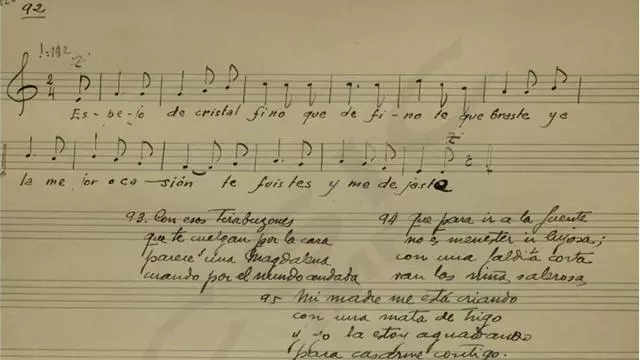 92
2
4
Es-be-jo de cristal fino que de fi-no te quebraste y a
la me jor oca-sión te fuistes y me dejaste
93. Con esos tirabuzones
que te cuelgan por la cara
pareces una Magdalena
cuando por el mundo andaba
94 que para ir a la fuente
no es menester ir lujosa;
con una faldita corta
van las niñas salerosas
95 Mi madre me está criando
con una mata de trigo
y yo la estoy aguardando
para casarme contigo.